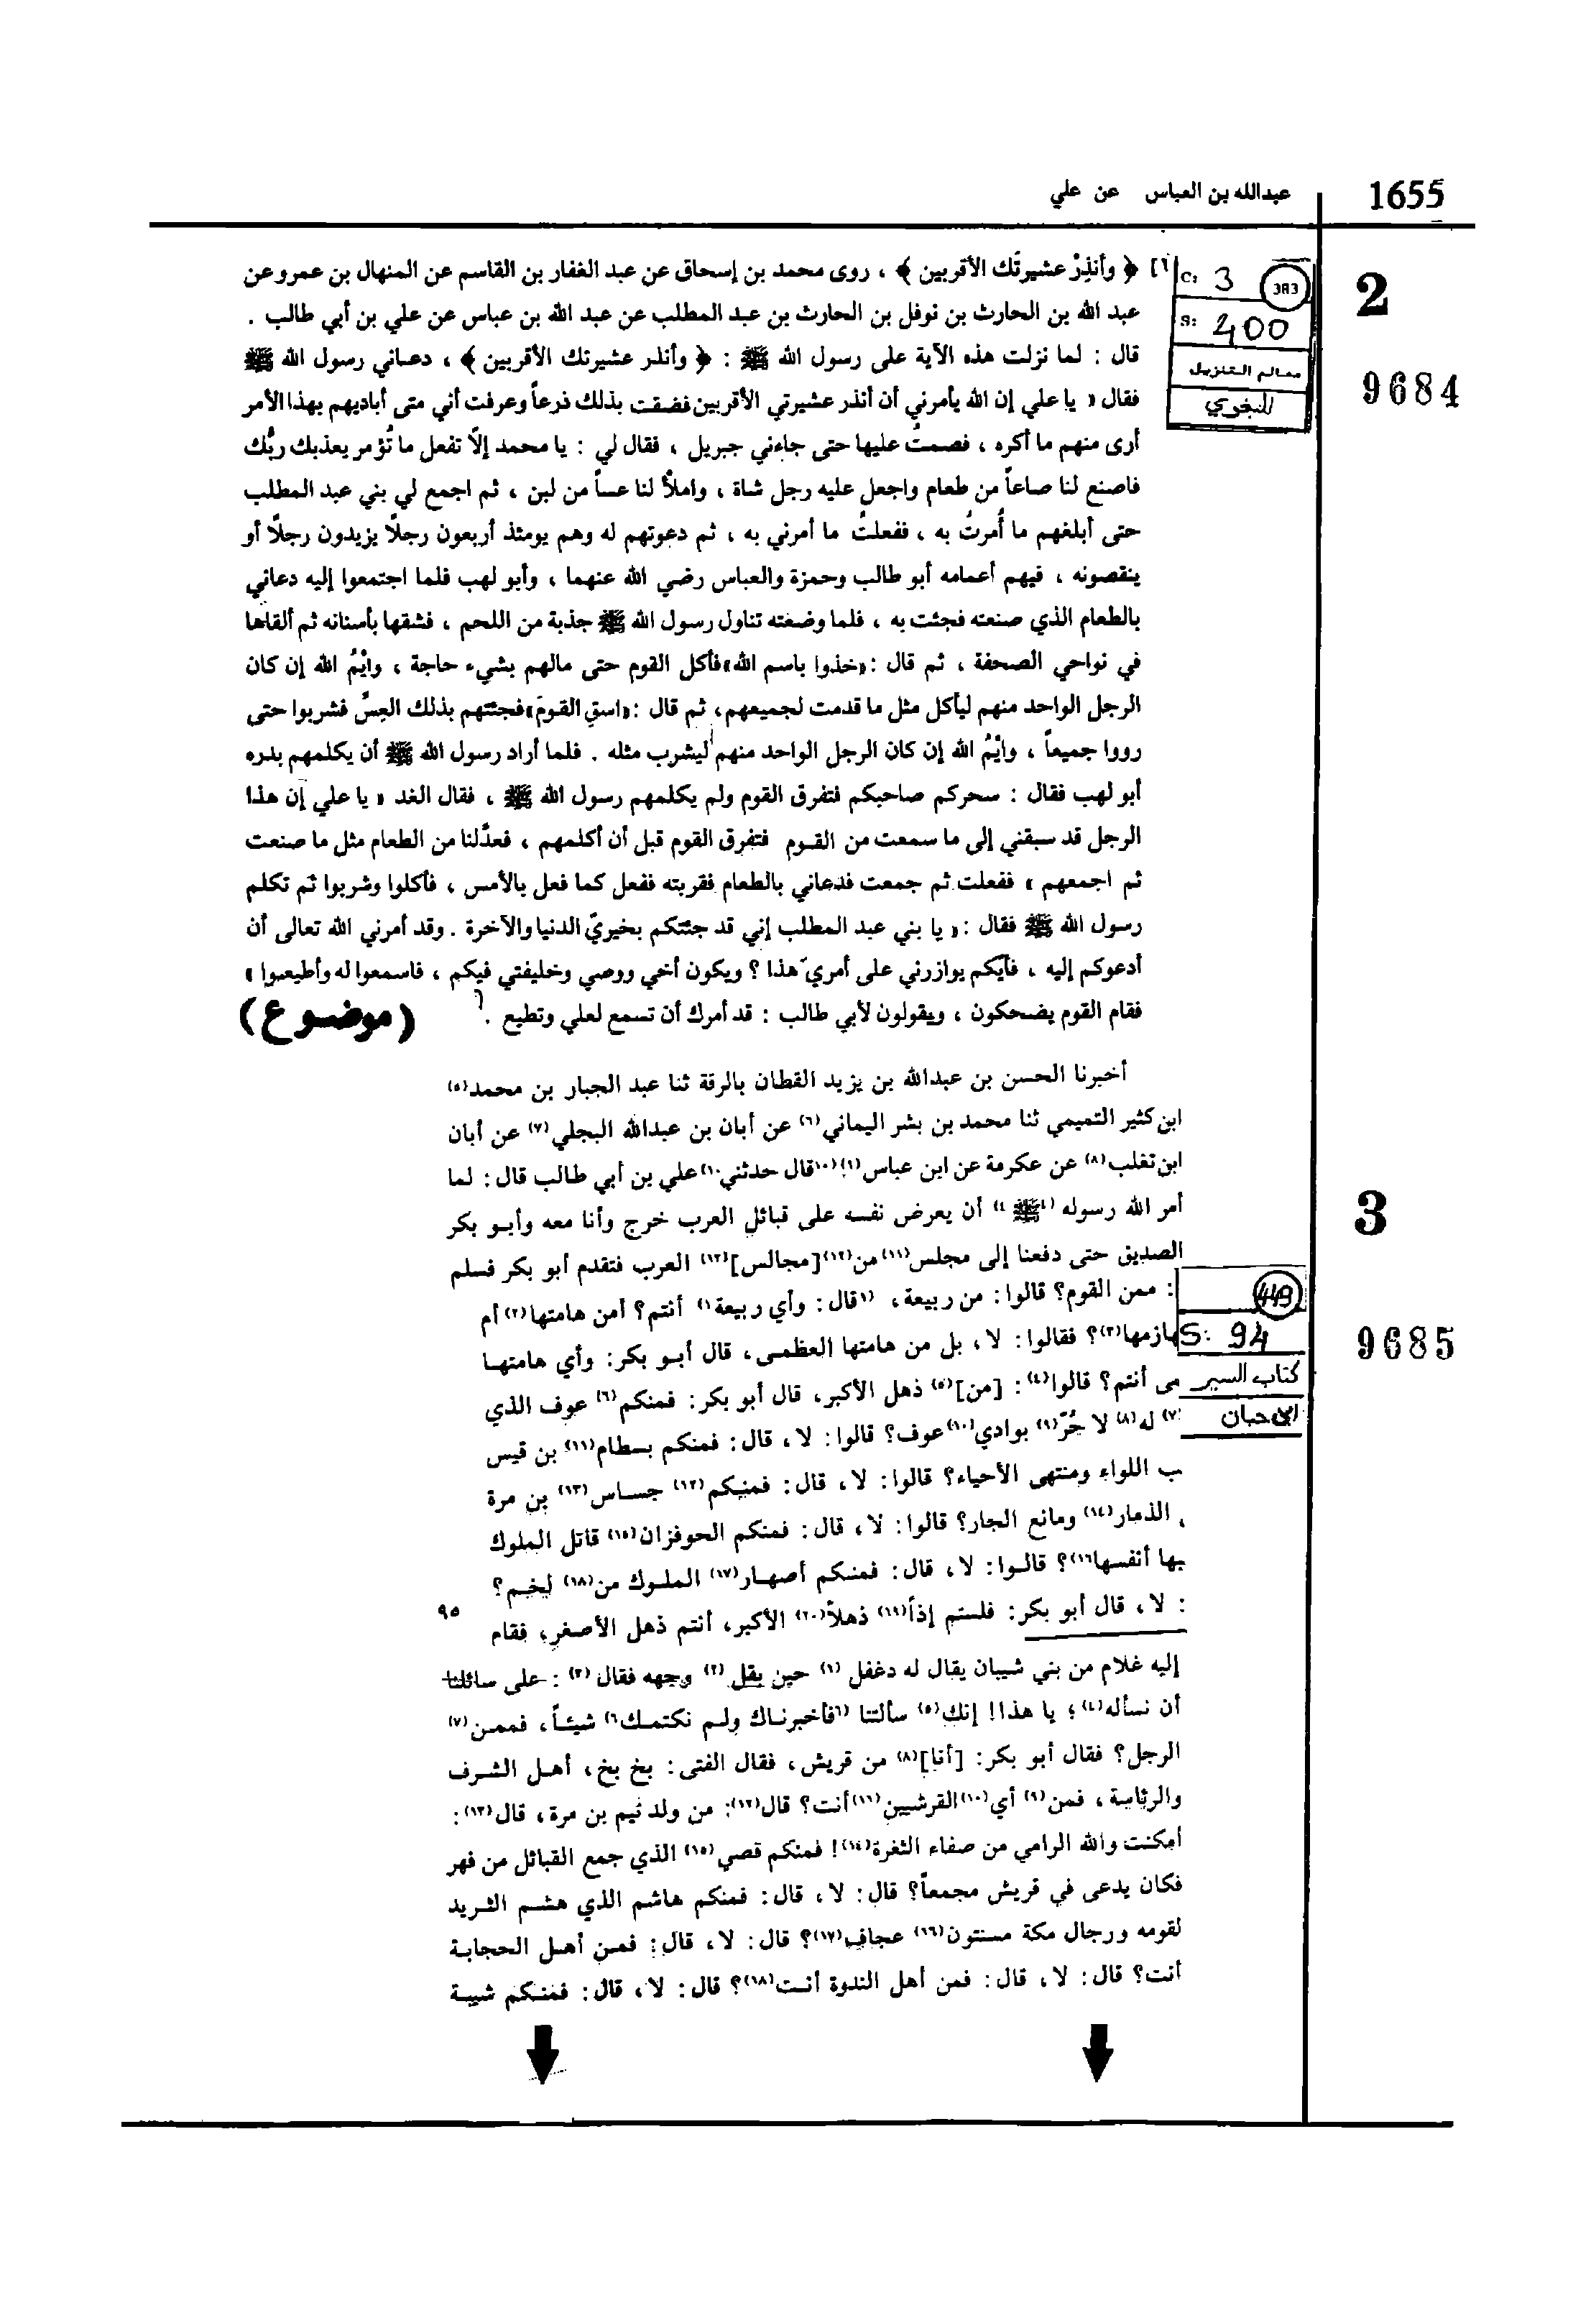 1655
عبدالله بن العباس عن علي
2
9684
C: 3
383
S: 400
معالم التنزيل
البغوي
﴿ وأنذِرْ عشيرتَك الأقربين ﴾ ، روى محمد بن إسحاق عن عبد الغفار بن القاسم عن المنهال بن عمرو عن
عبد الله بن الحارث بن نوفل بن الحارث بن عبد المطلب عن عبد الله بن عباس عن علي بن أبي طالب .
قال : لما نزلت هذه الآية على رسول الله ﷺ : ﴿ وأنذر عشيرتك الأقربين ﴾ ، دعاني رسول الله ﷺ
فقال « يا علي إن الله يأمرني أن أنذر عشيرتي الأقربين فضقت بذلك ذرعاً وعرفت أني متى أباديهم بهذا الأمر
أرى منهم ما أكره ، فصمتُّ عليها حتى جاءني جبريل ، فقال لي : يا محمد إلّا تفعل ما تُؤمر يعذبك ربُّك
فاصنع لنا صاعاً من طعام واجعل عليه رجل شاة ، واملأْ لنا عساً من لبن ، ثم اجمع لي بني عبد المطلب
حتى أبلغهم ما أُمرتُ به ، ففعلتُ ما أمرني به ، ثم دعوتهم له وهم يومئذ أربعون رجلًا يزيدون رجلًا أو
ينقصونه ، فيهم أعمامه أبو طالب وحمزة والعباس رضي الله عنهما ، وأبو لهب فلما اجتمعوا إليه دعاني
بالطعام الذي صنعته فجئت به ، فلما وضعته تناول رسول الله ﷺ جذبة من اللحم ، فشقها بأسنانه ثم ألقاها
في نواحي الصحفة ، ثم قال :«خذوا باسم الله»فأكل القوم حتى مالهم بشيء حاجة ، وايْمُ الله إن كان
الرجل الواحد منهم ليأكل مثل ما قدمت لجميعهم، ثم قال :«اسقِ القومَ»فجئتهم بذلك العِسِّ فشربوا حتى
رووا جميعاً ، وايْمُ الله إن كان الرجل الواحد منهم ليشرب مثله . فلما أراد رسول الله ﷺ أن يكلمهم بدره
أبو لهب فقال : سحركم صاحبكم فتفرق القوم ولم يكلمهم رسول الله ﷺ ، فقال الغد « يا علي إن هذا
الرجل قد سبقني إلى ما سمعت من القوم فتفرق القوم قبل أن أكلمهم ، فعدّلنا من الطعام مثل ما صنعت
ثم اجمعهم » ففعلت ثم جمعت فدعاني بالطعام فقربته ففعل كما فعل بالأمس ، فأكلوا وشربوا ثم تكلم
رسول الله ﷺ فقال :« يا بني عبد المطلب إني قد جئتكم بخيريّ الدنيا والآخرة . وقد أمرني الله تعالى أن
أدعوكم إليه ، فأيكم يوازرني على أمري هذا ؟ ويكون أخي ووصي وخليفتي فيكم ، فاسمعوا له وأطيعوا »
فقام القوم يضحكون ، ويقولون لأبي طالب : قد أمرك أن تسمع لعلي وتطيع .
(موضوع)
3
9685
449
S: 94
كتاب السير
ابن حبان
أخبرنا الحسن بن عبدالله بن يزيد القطان بالرقة ثنا عبد الجبار بن محمد(٥)
ابن كثير التميمي ثنا محمد بن بشر اليماني(٦) عن أبان بن عبدالله البجلي(٧) عن أبان
ابن تغلب(٨) عن عكرمة عن ابن عباس(٩) (١٠قال حدثني١٠) علي بن أبي طالب قال: لما
أمر الله رسوله (٤ﷺ٤) أن يعرض نفسه على قبائل العرب خرج وأنا معه وأبو بكر
الصديق حتى دفعنا إلى مجلس(١١) من(١٢) [مجالس](١٣) العرب فتقدم أبو بكر فسلم
: ممن القوم؟ قالوا: من ربيعة، (١قال: وأي ربيعة١) أنتم؟ أمن هامتها(٢) أم
هازمها(٣)؟ فقالوا: لا، بل من هامتها العظمى، قال أبو بكر: وأي هامتها
مى أنتم؟ قالوا(٤): [من](٥) ذهل الأكبر، قال أبو بكر: فمنكم(٦) عوف الذي
(٧) له(٨) لا حُرّ(٩) بوادي(١٠) عوف؟ قالوا: لا، قال: فمنكم بسطام(١١) بن قيس
ب اللواء ومنتهى الأحياء؟ قالوا: لا، قال: فمنكم(١٢) جساس(١٣) بن مرة
الذمار(١٤) ومانع الجار؟ قالوا: لا، قال: فمنكم الحوفزان(١٥) قاتل الملوك
بها أنفسها(١٦)؟ قالوا: لا، قال: فمنكم أصهار(١٧) الملوك من(١٨) لخم؟
: لا، قال أبو بكر: فلستم إذاً(١٩) ذهلاً(٢٠) الأكبر، أنتم ذهل الأصغر، فقام
٩٥
إليه غلام من بني شيبان يقال له دغفل (١) حين بقل (٢) وجهه فقال (٣) : على سائلنا
أن نسأله(٤) ؛ يا هذا! إنك(٥) سألتنا (٦فأخبرناك ولم نكتمك٦) شيئاً، فممن(٧)
الرجل؟ فقال أبو بكر: [أنا](٨) من قريش، فقال الفتى: بخ بخ، أهل الشرف
والرئاسة، فمن(٩) أي(١٠) القرشيين(١١) أنت؟ قال(١٢): من ولد تيم بن مرة، قال(١٣):
أمكنت والله الرامي من صفاء الثغرة(١٤)! فمنكم قصي(١٥) الذي جمع القبائل من فهر
فكان يدعى في قريش مجمعاً؟ قال: لا، قال: فمنكم هاشم الذي هشم الثريد
لقومه ورجال مكة مسنتون(١٦) عجاف(١٧)؟ قال: لا، قال: فمن أهل الحجابة
أنت؟ قال: لا، قال: فمن أهل الندوة أنت(١٨)؟ قال: لا، قال: فمنكم شيبة